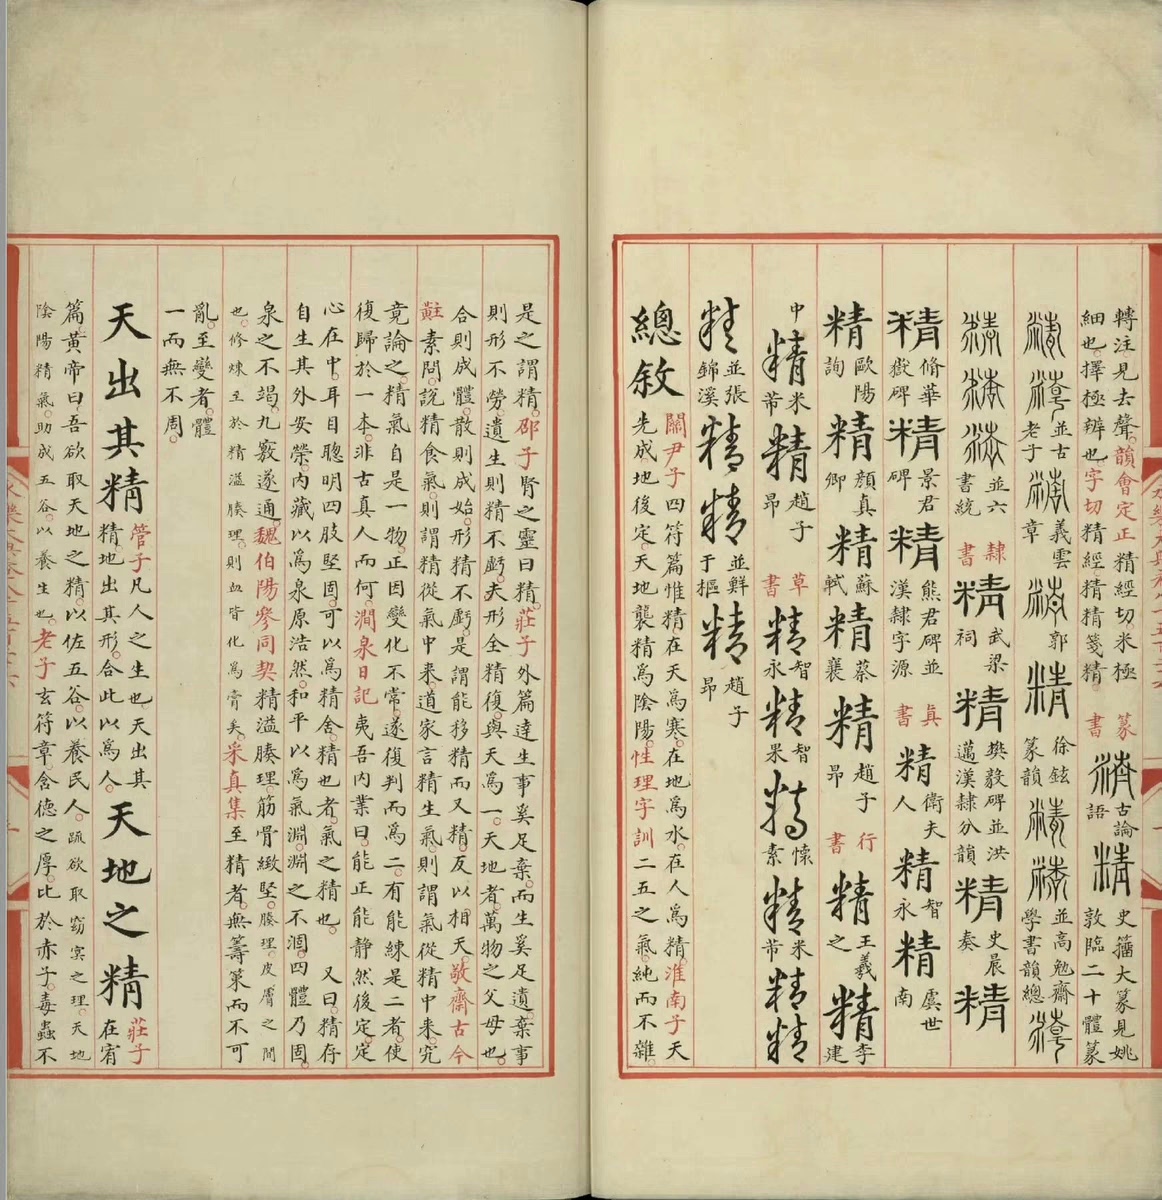 轉注見去聲韻會定正精經切米極細也擇極辨也字切精經精精箋精篆書精古論語精史籀大篆見姚敦臨二十體篆
精精並古老子精義雲章精郭精徐鉉篆韻精精並高勉齋學書韻總精
精精精並六書統隸書精武梁祠精樊毅碑並洪邁漢隸分韻精史晨奏精
精脩華嶽碑精景君碑精熊君碑並漢隸字源真書精衛夫人精智永精虞世南
精歐陽詢精顏真卿精蘇軾精蔡襄精趙子昂行書精王羲之精李建
中精米芾精趙子昂草書精智永精智果精懷素精米芾精精
精並張錦溪精精並鮮于樞精趙子昂
總敘關尹子四符篇惟精在天為寒在地為水在人為精淮南子天先成地後定天地襲精為陰陽性理字訓二五之氣純而不雜
是之謂精邵子腎之靈曰精莊子外篇達生事奚足棄而生奚足遺棄事則形不勞遺生則精不虧夫形全精復與天為一天地者萬物之父母也
合則成體散則成始形精不虧是謂能移精而又精反以相天敬齋古今黈素問說精食氣則謂精從氣中来道家言精生氣則謂氣從精中来究
竟論之精氣自是一物正因變化不常遂復判而為二有能練是二者使復歸於一本非古真人而何澗泉日記夷吾内業曰能正能静然後定定
心在中耳目聰明四肢堅固可以為精舍精也者氣之精也又曰精存自生其外安榮内藏以為泉原浩然和平以為氣淵淵之不涸四體乃固
泉之不竭九竅遂通魏伯陽參同契精溢腠理筋骨緻堅腠理皮膚之間也修煉至於精溢腠理則血皆化為膏矣采真集至精者無籌策而不可
亂至變者體一而無不周
天出其精管子凡人之生也天出其精地出其形合此以為人天地之精莊子在宥
篇黃帝曰吾欲取天地之精以佐五谷以養民人疏欲取窈冥之理天地陰陽精氣助成五谷以養生也老子玄符章含德之厚比於赤子毒蟲不